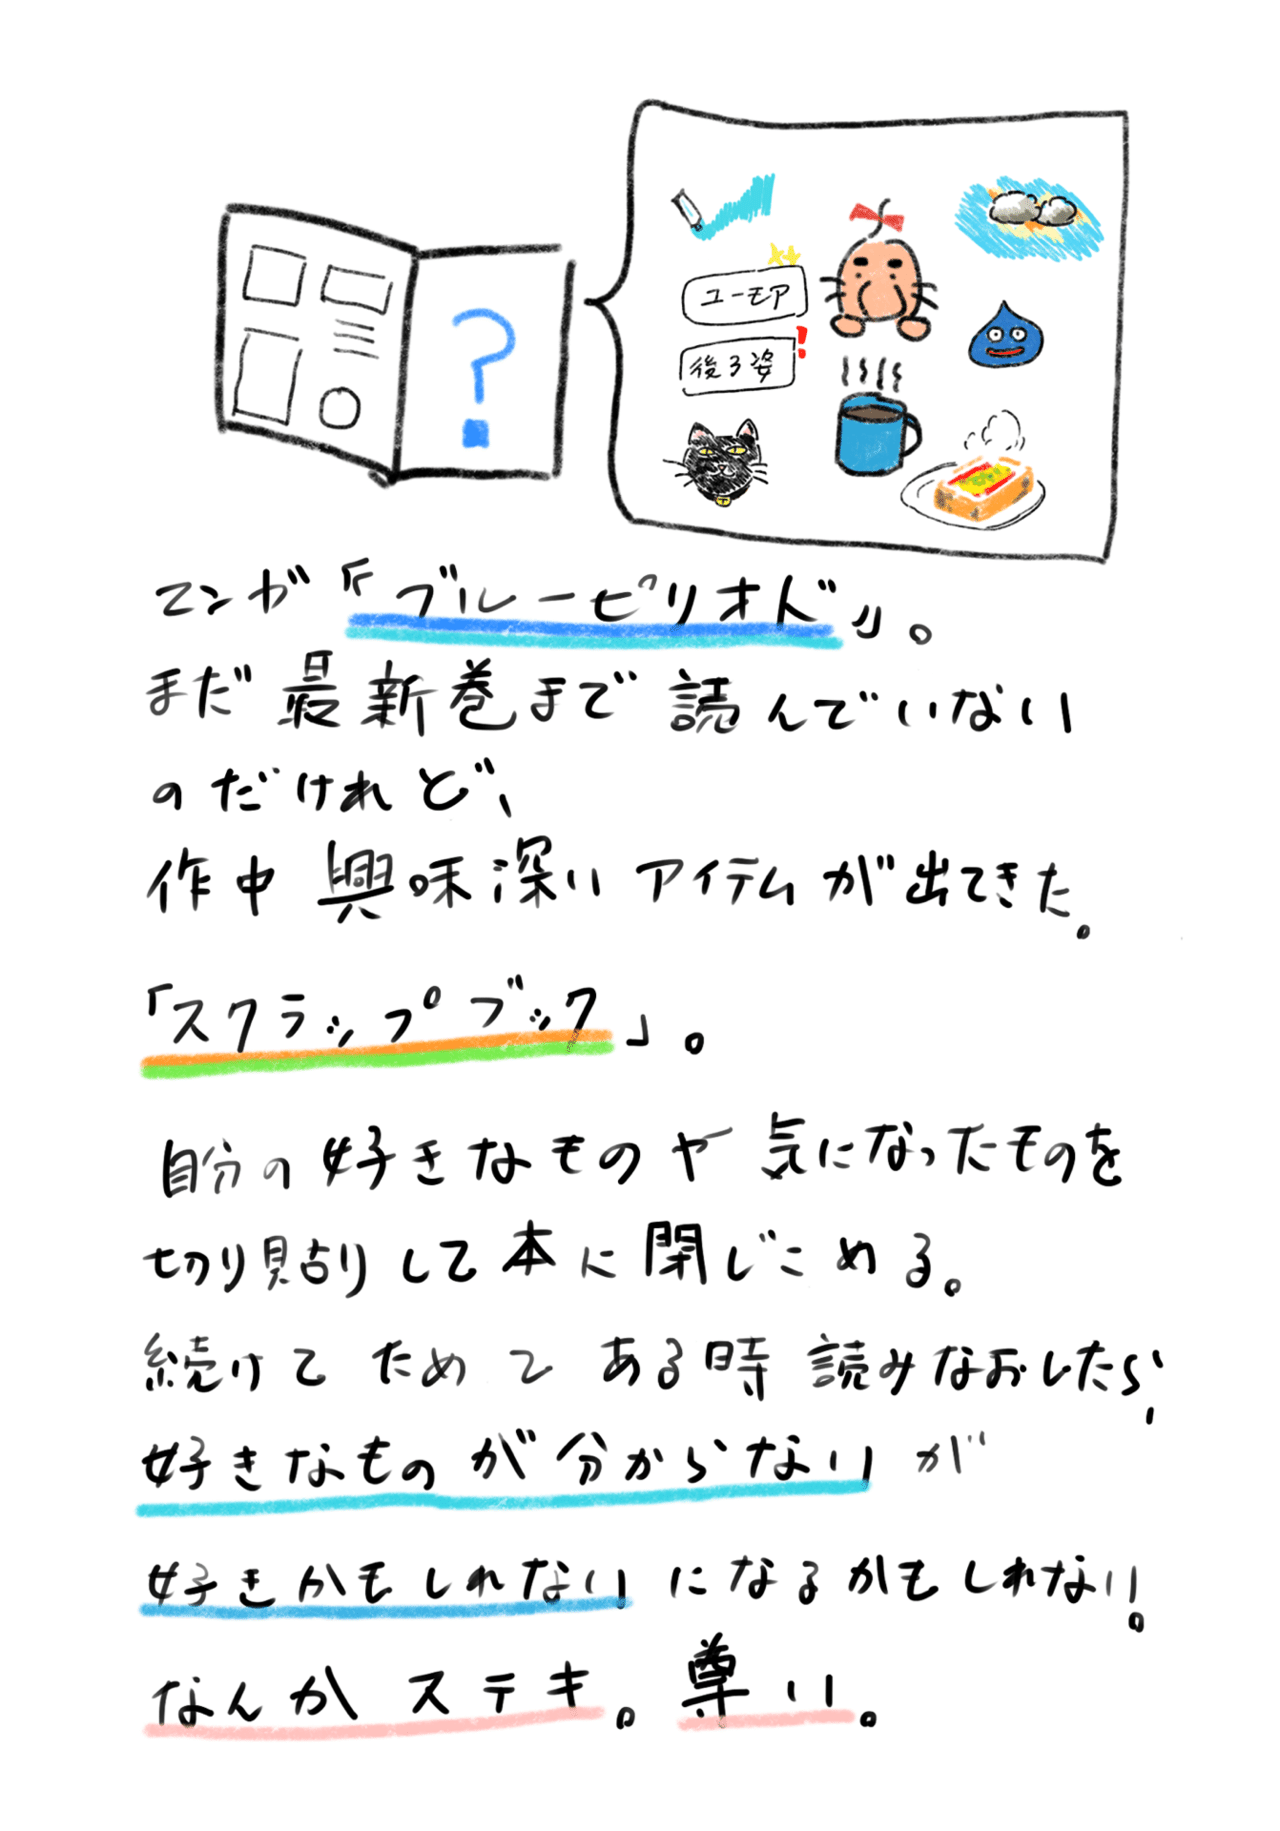 ?
ユーモア
後ろ姿
マンガ『ブルーピリオド』。
まだ最新巻まで読んでいない
のだけれど、
作中興味深いアイテムが出てきた。
「スクラップブック」。
自分の好きなものや気になったものを
切り貼りして本に閉じこめる。
続けてためてある時読みなおしたら、
好きなものが分からないが
好きかもしれないになるかもしれない。
なんかステキ。尊い。